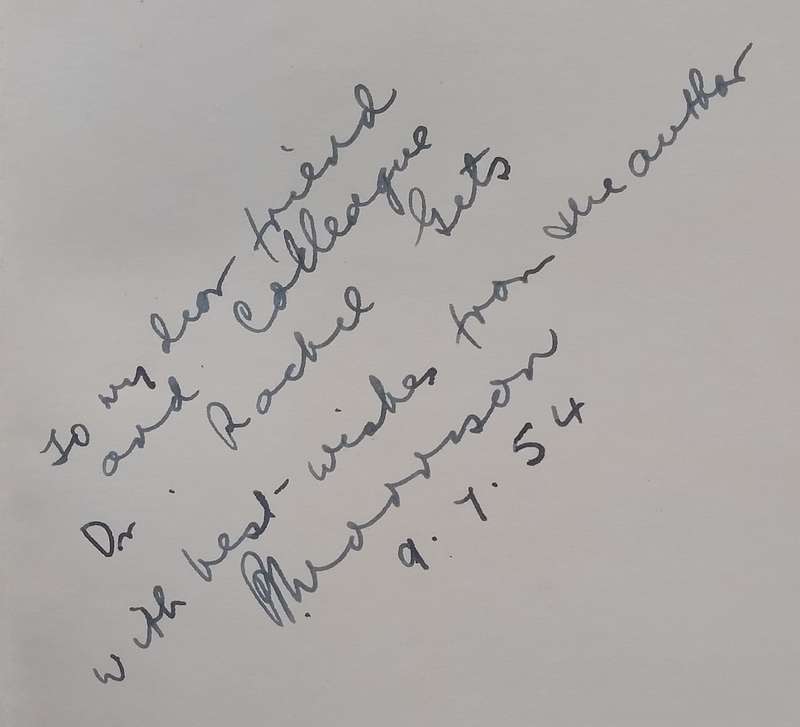 To my dear friend
and Colleague
Dr. Rachel Gets
with best wishes from the author
9.7.54